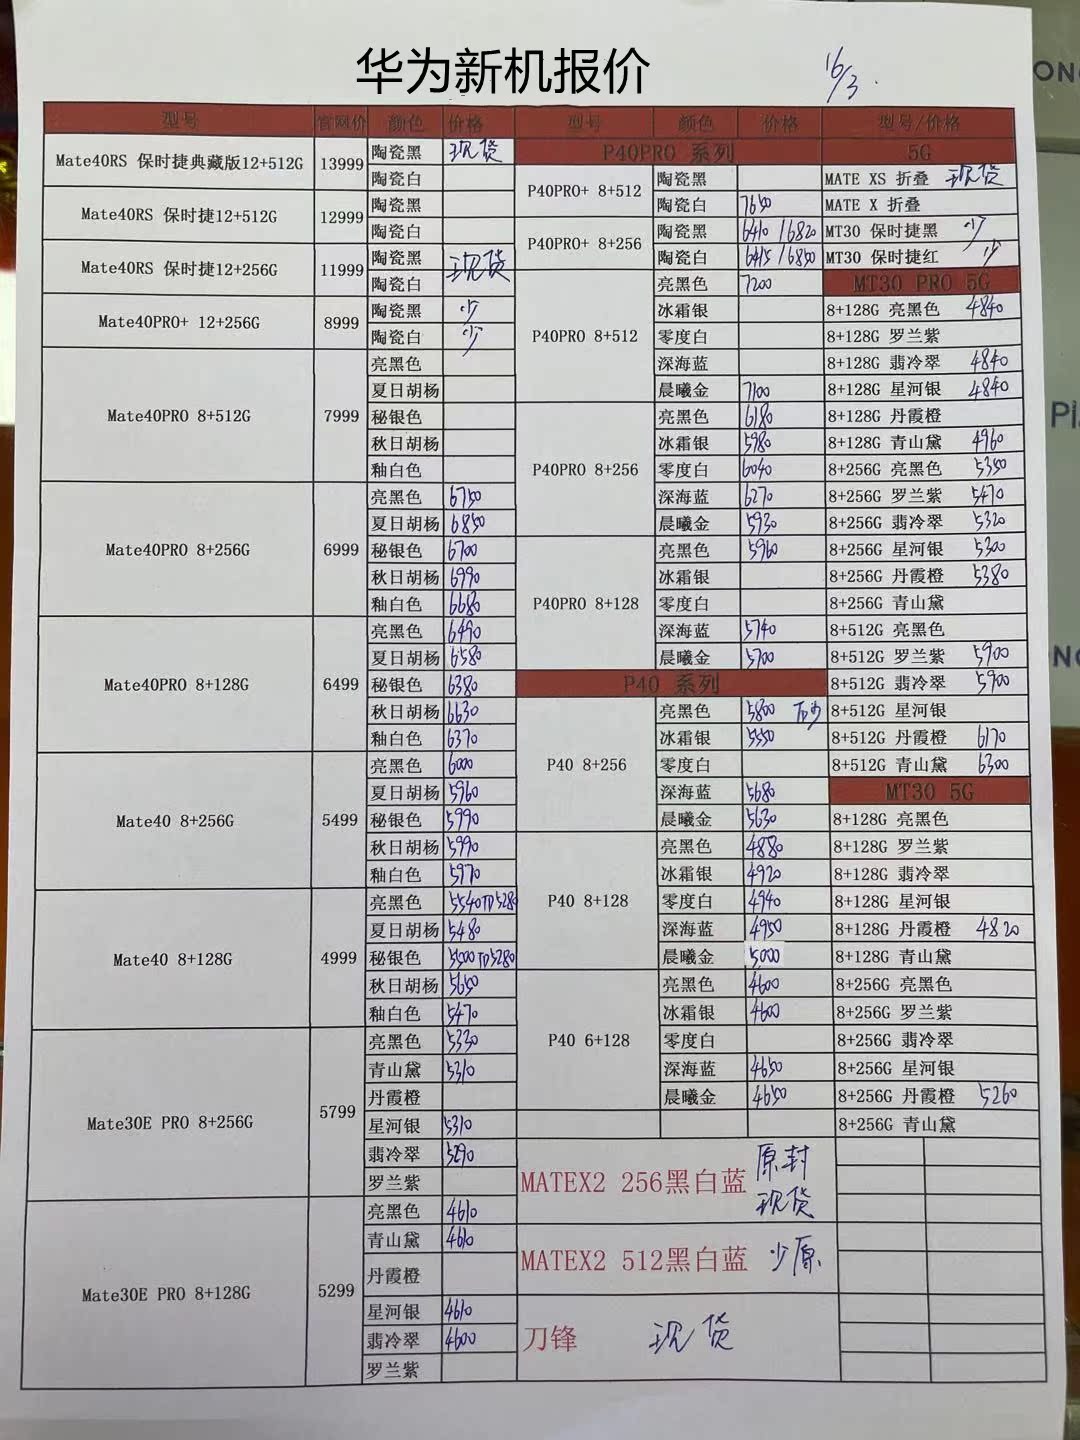 华为新机报价
16/3.
型号 官网价 颜色 价格
Mate40RS 保时捷典藏版12+512G 13999 陶瓷黑 现货
陶瓷白
Mate40RS 保时捷12+512G 12999 陶瓷黑
陶瓷白
Mate40RS 保时捷12+256G 11999 陶瓷黑 现货
陶瓷白
Mate40PRO+ 12+256G 8999 陶瓷黑 少
陶瓷白 少
Mate40PRO 8+512G 7999 亮黑色
夏日胡杨
秘银色
秋日胡杨
釉白色
Mate40PRO 8+256G 6999 亮黑色 6750
夏日胡杨 6850
秘银色 6700
秋日胡杨 6990
釉白色 6680
Mate40PRO 8+128G 6499 亮黑色 6490
夏日胡杨 6580
秘银色 6380
秋日胡杨 6630
釉白色 6370
Mate40 8+256G 5499 亮黑色 6000
夏日胡杨 5960
秘银色 5990
秋日胡杨 5990
釉白色 5970
Mate40 8+128G 4999 亮黑色 5540TD5280
夏日胡杨 5480
秘银色 5500TD5280
秋日胡杨 5650
釉白色 5470
Mate30E PRO 8+256G 5799 亮黑色 5330
青山黛 5310
丹霞橙
星河银 5310
翡冷翠 5290
罗兰紫
Mate30E PRO 8+128G 5299 亮黑色 4610
青山黛 4610
丹霞橙
星河银 4610
翡冷翠 4600
罗兰紫
型号 颜色 价格
P40PRO 系列
P40PRO+ 8+512 陶瓷黑
陶瓷白 7650
P40PRO+ 8+256 陶瓷黑 6410 /6820
陶瓷白 6415/6850
P40PRO 8+512 亮黑色 7200
冰霜银
零度白
深海蓝
晨曦金 7100
P40PRO 8+256 亮黑色 6180
冰霜银 5980
零度白 6040
深海蓝 6270
晨曦金 5930
P40PRO 8+128 亮黑色 5960
冰霜银
零度白
深海蓝 5740
晨曦金 5700
P40 系列
P40 8+256 亮黑色 5800
冰霜银 5550
零度白
深海蓝 5680
晨曦金 5630
P40 8+128 亮黑色 4880
冰霜银 4920
零度白 4940
深海蓝 4950
晨曦金 5000
P40 6+128 亮黑色 4600
冰霜银 4600
零度白
深海蓝 4650
晨曦金 4650
MATEX2 256黑白蓝 原封
现货
MATEX2 512黑白蓝 少原
刀锋 现货
型号/价格
5G
MATE XS 折叠 现货
MATE X 折叠
MT30 保时捷黑 少
MT30 保时捷红 少
MT30 PRO 5G
8+128G 亮黑色 4840
8+128G 罗兰紫
8+128G 翡冷翠 4840
8+128G 星河银 4840
8+128G 丹霞橙
8+128G 青山黛 4960
8+256G 亮黑色 5350
8+256G 罗兰紫 5470
8+256G 翡冷翠 5320
8+256G 星河银 5300
8+256G 丹霞橙 5380
8+256G 青山黛
8+512G 亮黑色
8+512G 罗兰紫 5900
8+512G 翡冷翠 5900
8+512G 星河银
8+512G 丹霞橙 6170
8+512G 青山黛 6300
MT30 5G
8+128G 亮黑色
8+128G 罗兰紫
8+128G 翡冷翠
8+128G 星河银
8+128G 丹霞橙 4820
8+128G 青山黛
8+256G 亮黑色
8+256G 罗兰紫
8+256G 翡冷翠
8+256G 星河银
8+256G 丹霞橙 5260
8+256G 青山黛